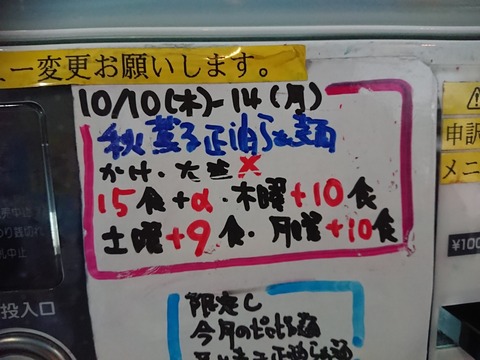 ュー変更お願いします。
10/10(木)-14(月)
秋薫る正油らぁ麺
かけ・大盛×
15食+α・木曜+10食
土曜+9食・月曜+10食
限定C
今月の
投入口
申訳
メニ
¥100